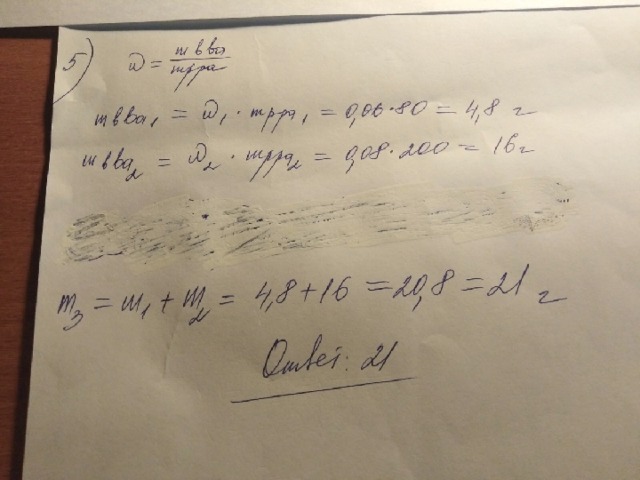 5) ω = m в ва / m р ра
m в ва₁ = ω₁ · m р ра₁ = 0,06 · 80 = 4,8 г
m в ва₂ = ω₂ · m р ра₂ = 0,08 · 200 = 16 г
m₃ = m₁ + m₂ = 4,8 + 16 = 20,8 = 21 г
Ответ: 21